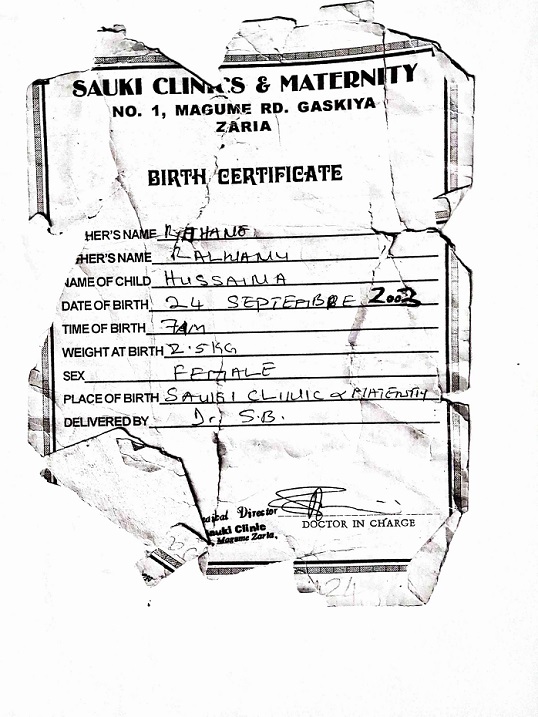 SAUKI CLINICS & MATERNITY
NO. 1, MAGUME RD. GASKIYA
ZARIA
BIRTH CERTIFICATE
HER'S NAME
HER'S NAME
NAME OF CHILD HUSSAINA
DATE OF BIRTH 24 SEPTEMBRE 2003
TIME OF BIRTH 7AM
WEIGHT AT BIRTH 2.5KG
SEX FEMALE
PLACE OF BIRTH SAUKI CLINIC & MATERNITY
DELIVERED BY Dr S.B.
ical Director
auki Clinic
Magume Zaria,
DOCTOR IN CHARGE
24